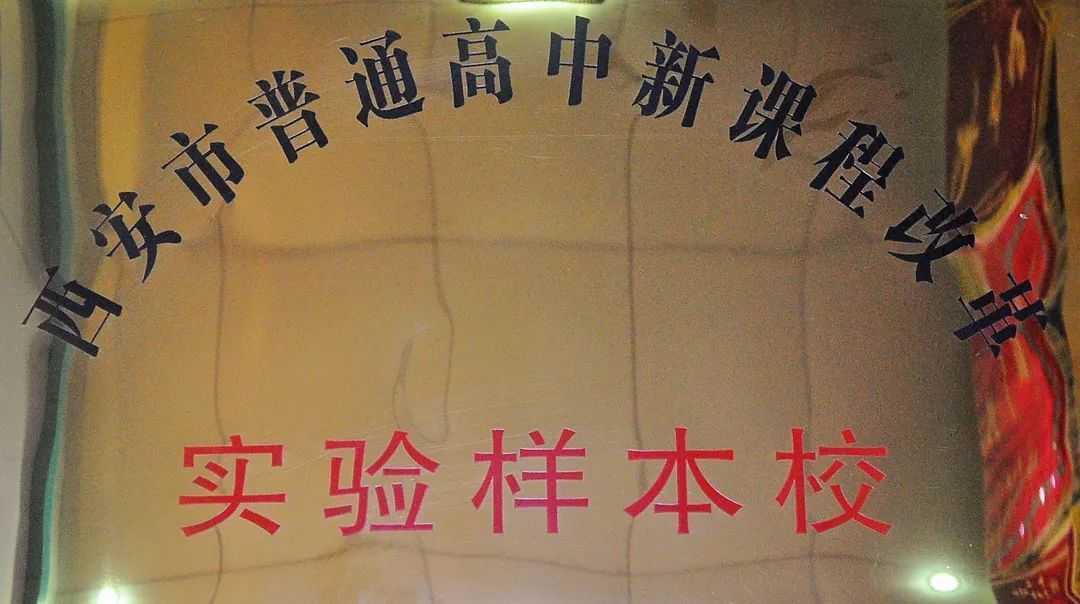 西安市普通高中新课程改革
实验样本校